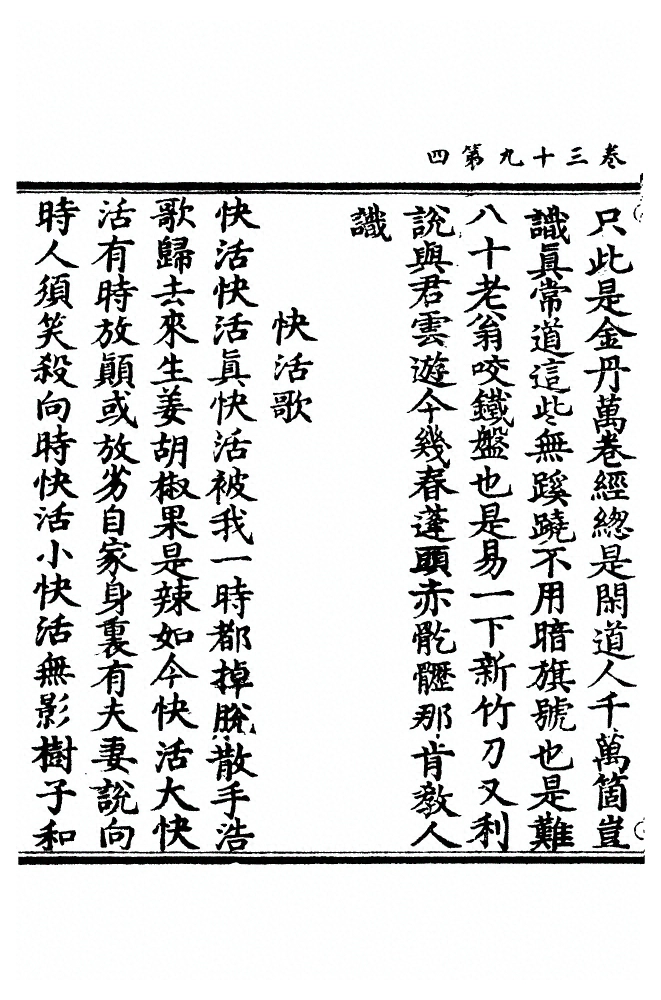 卷三十九第四
只此是金丹萬卷經總是閑道人千萬箇豈
識眞常道這些無蹊蹺不用暗旗號也是難
八十老翁咬鐵盤也是易一下新竹刀又利
說與君雲遊今幾春蓬頭赤骭髒那肯教人
識
快活歌
快活快活眞快活被我一時都掉脫散手浩
歌歸去來生姜胡椒果是辣如今快活大快
活有時放顚或放劣自家身裏有夫妻說向
時人須笑殺向時快活小快活無影樹子和